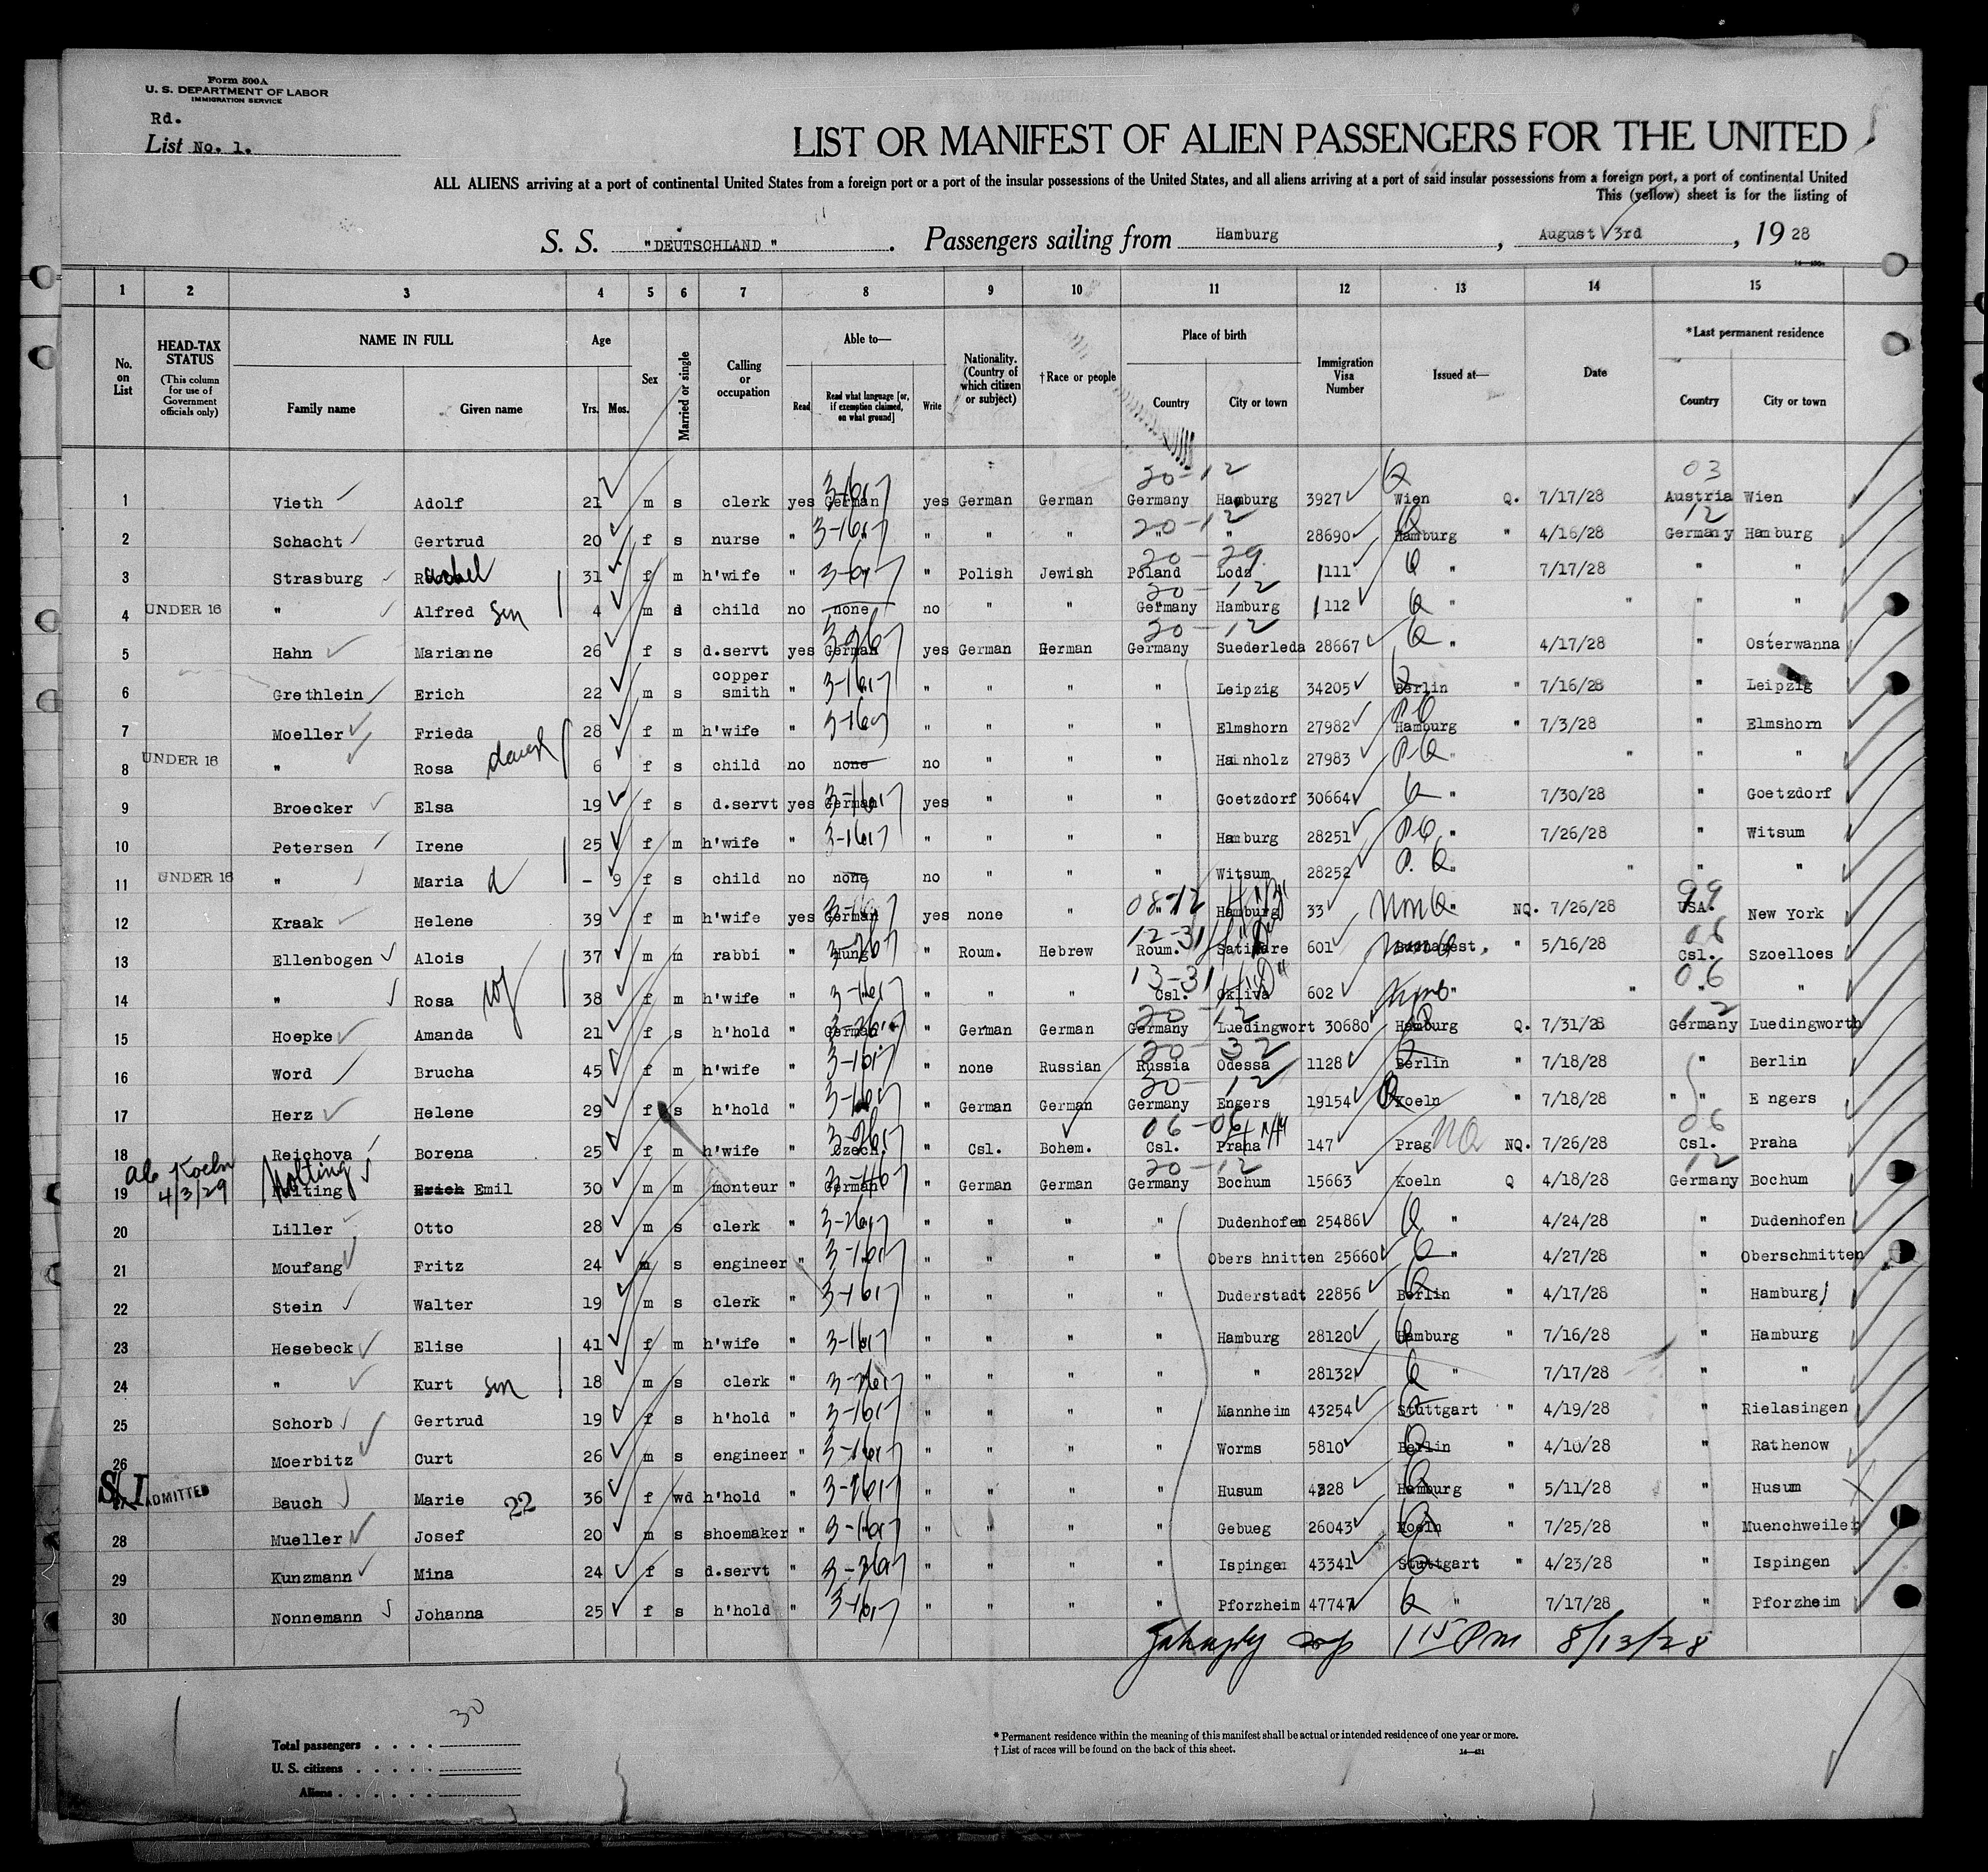 Form 500A
U. S. DEPARTMENT OF LABOR
IMMIGRATION SERVICE
Rd.
List No. 1.
LIST OR MANIFEST OF ALIEN PASSENGERS FOR THE UNITED
ALL ALIENS arriving at a port of continental United States from a foreign port or a port of the insular possessions of the United States, and all aliens arriving at a port of said insular possessions from a foreign port, a port of continental United
This (yellow) sheet is for the listing of
S. S. "DEUTSCHLAND". Passengers sailing from Hamburg, August 3rd, 19 28
1 2 3 4 5 6 7 8 9 10 11 12 13 14 15
No. on List
HEAD-TAX STATUS (This column for use of Government officials only)
NAME IN FULL Family name Given name
Age Yrs. Mos.
Sex
Married or single
Calling or occupation
Able to— Read Read what language [or, if exemption claimed, on what ground] Write
Nationality. (Country of which citizen or subject)
†Race or people
Place of birth Country City or town
Immigration Visa Number
Issued at—
Date
*Last permanent residence Country City or town
20-12 03
1 Vieth Adolf 21 m s clerk yes German yes German German Germany Hamburg 3927 Wien Q. 7/17/28 Austria Wien
20-12 12
2 Schacht Gertrud 20 f s nurse " " " " " " " 28690 Hamburg " 4/16/28 Germany Hamburg
20-29
3 Strasburg 31 f m h'wife " " Polish Jewish Poland Lodz 1111 " 7/17/28 " "
20-12
4 UNDER 16 " Alfred son 4 m s child no none no " " Germany Hamburg 1112 " " " "
20-12
5 Hahn Marianne 26 f s d.servt yes German yes German German Germany Suederleda 28667 " 4/17/28 " Osterwanna
6 Grethlein Erich 22 m s copper smith " " " " " Leipzig 34205 Berlin " 7/16/28 " Leipzig
7 Moeller Frieda 28 f m h'wife " " " " " Elmshorn 27982 Hamburg " 7/3/28 " Elmshorn
8 UNDER 16 " Rosa 6 f s child no none no " " " Hainholz 27983 " " " "
9 Broecker Elsa 19 f s d.servt yes German yes " " " Goetzdorf 30664 " 7/30/28 " Goetzdorf
10 Petersen Irene 25 f m h'wife " " " " " Hamburg 28251 " 7/26/28 " Witsum
11 UNDER 16 " Maria d - 9 f s child no none no " " " Witsum 28252 " " " "
08-12 99
12 Kraak Helene 39 f m h'wife yes German yes none " " Hamburg 33 Non Q " NQ. 7/26/28 USA. New York
12-31 06
13 Ellenbogen Alois 37 m m rabbi " Hung. " Roum. Hebrew Roum. Satimare 601 Bucharest. " 5/16/28 Csl. Szoelloes
13-31 06
14 " Rosa wf 38 f m h'wife " " " " Csl. Okliva 602 " " " "
20-12 12
15 Hoepke Amanda 21 f s h'hold " German " German German Germany Luedingwort 30680 Hamburg Q. 7/31/28 Germany Luedingworth
20-32
16 Word Brucha 45 f m h'wife " " none Russian Russia Odessa 1128 Berlin " 7/18/28 " Berlin
20-12
17 Herz Helene 29 f s h'hold " " German German Germany Engers 19154 Koeln " 7/18/28 " " Engers
06-06 06
18 Rejchova Borena 25 f m h'wife " Czech. " Csl. Bohem. Csl. Praha 147 Prag NQ NQ. 7/26/28 Csl. Praha
4/3/29 Nolting 20-12 12
19 Erich Emil 30 m m monteur " German " German German Germany Bochum 15663 Koeln Q 4/18/28 Germany Bochum
20 Liller Otto 28 m s clerk " " " " " Dudenhofen 25486 " 4/24/28 " Dudenhofen
21 Moufang Fritz 24 m s engineer " " " " " Obers hnitten 25660 " 4/27/28 " Oberschmitten
22 Stein Walter 19 m s clerk " " " " " Duderstadt 22856 Berlin " 4/17/28 " Hamburg
23 Hesebeck Elise 41 f m h'wife " " " " " Hamburg 28120 Hamburg " 7/16/28 " Hamburg
24 " Kurt son 18 m s clerk " " " " " " 28132 " 7/17/28 " "
25 Schorb Gertrud 19 f s h'hold " " " " " Mannheim 43254 Stuttgart " 4/19/28 " Rielasingen
26 Moerbitz Curt 26 m s engineer " " " " " Worms 5810 Berlin " 4/10/28 " Rathenow
S.I. ADMITTED Bauch Marie 22 36 f wd h'hold " " " " " Husum 4328 Hamburg " 5/11/28 " Husum
28 Mueller Josef 20 m s shoemaker " " " " " Gebueg 26043 Koeln " 7/25/28 " Muenchweiler
29 Kunzmann Mina 24 f s d.servt " " " " " Ispingen 43341 Stuttgart " 4/23/28 " Ispingen
30 Nonnemann Johanna 25 f s h'hold " " " " " Pforzheim 47747 " 7/17/28 " Pforzheim
1 15 PM 8/13/28
30
Total passengers
U. S. citizens
Aliens
* Permanent residence within the meaning of this manifest shall be actual or intended residence of one year or more.
† List of races will be found on the back of this sheet.
14—421